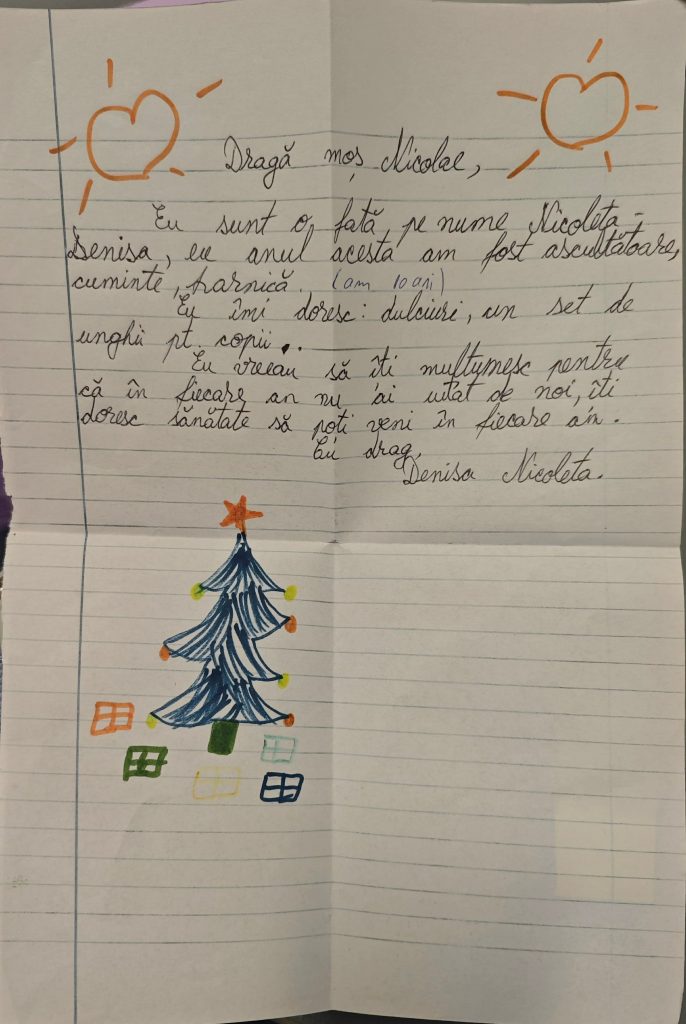 Dragă moș Nicolae,
Eu sunt o fată pe nume Nicoleta-
Denisa, eu anul acesta am fost ascultătoare,
cuminte, harnică. (am 10 ani)
Eu îmi doresc: dulciuri, un set de
unghii pt. copii.
Eu vreau să îți mulțumesc pentru
că în fiecare an nu ai uitat de noi, îți
doresc sănătate să poți veni în fiecare an.
Cu drag,
Denisa Nicoleta.